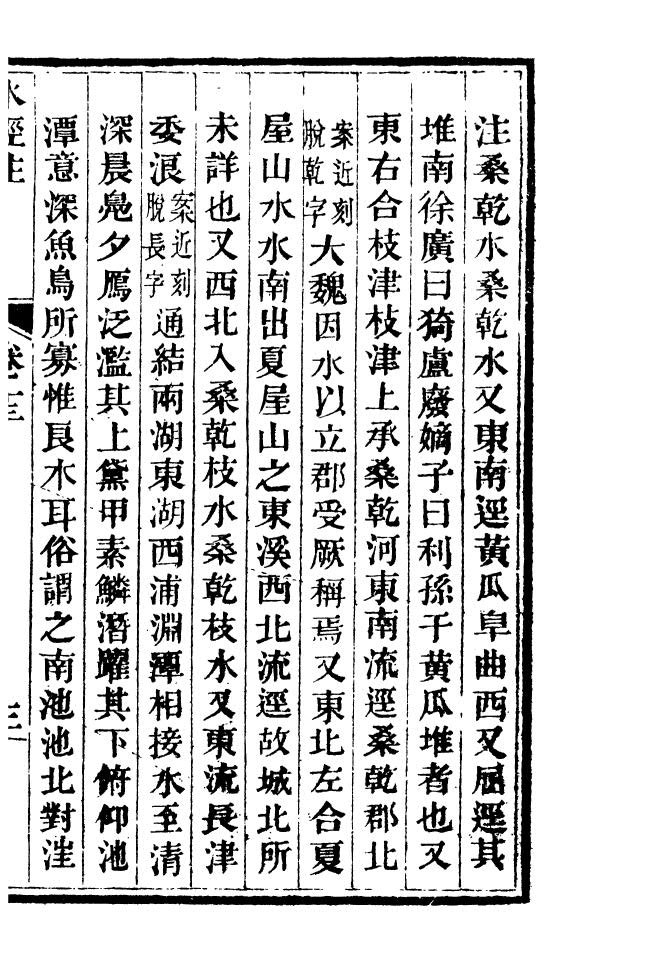 注桑乾水桑乾水又東南逕黃瓜阜曲西又屈逕其
堆南徐廣曰猗盧廢嫡子曰利孫于黃瓜堆者也又
東右合枝津枝津上承桑乾河東南流逕桑乾郡北
案近刻脫乾字大魏因水以立郡受厥稱焉又東北左合夏
屋山水水南出夏屋山之東溪西北流逕故城北所
未詳也又西北入桑乾枝水桑乾枝水又東流長津
委浪案近刻脫長字通結兩湖東湖西浦淵潭相接水至清
深晨鳧夕鴈泛濫其上黛甲素鱗潛躍其下俯仰池
潭意深魚鳥所寡惟良木耳俗謂之南池池北對𣴠
水經注
卷十三
三